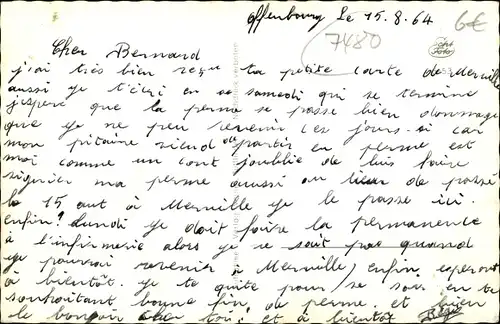 Offenbourg Le 15.8.64
6€
7480
Echt Foto
Cher Bernard
j'ai très bien reçu ta petite carte de Merville
aussi je t'écri en se samedi qui se termine
j'espère que la perme se passe bien dommage
que je ne peu revenir ces jours-si car
mon pitaine viend de partir en perme est
moi comme un cont j'oublie de luis faire
signier ma perme aussi au lieu de passé
le 15 aut à Merville je le passe ici.
enfin! Lundi je doit faire la permanence
à l'infirmerie alors je ne sait pas quand
je pourrai revenir à Merville, enfin esperont
à bientôt. je te quite pour se soir en te
souhaitant bonne fin de perme. et bien
le bonjoir chez toi! et à bientôt